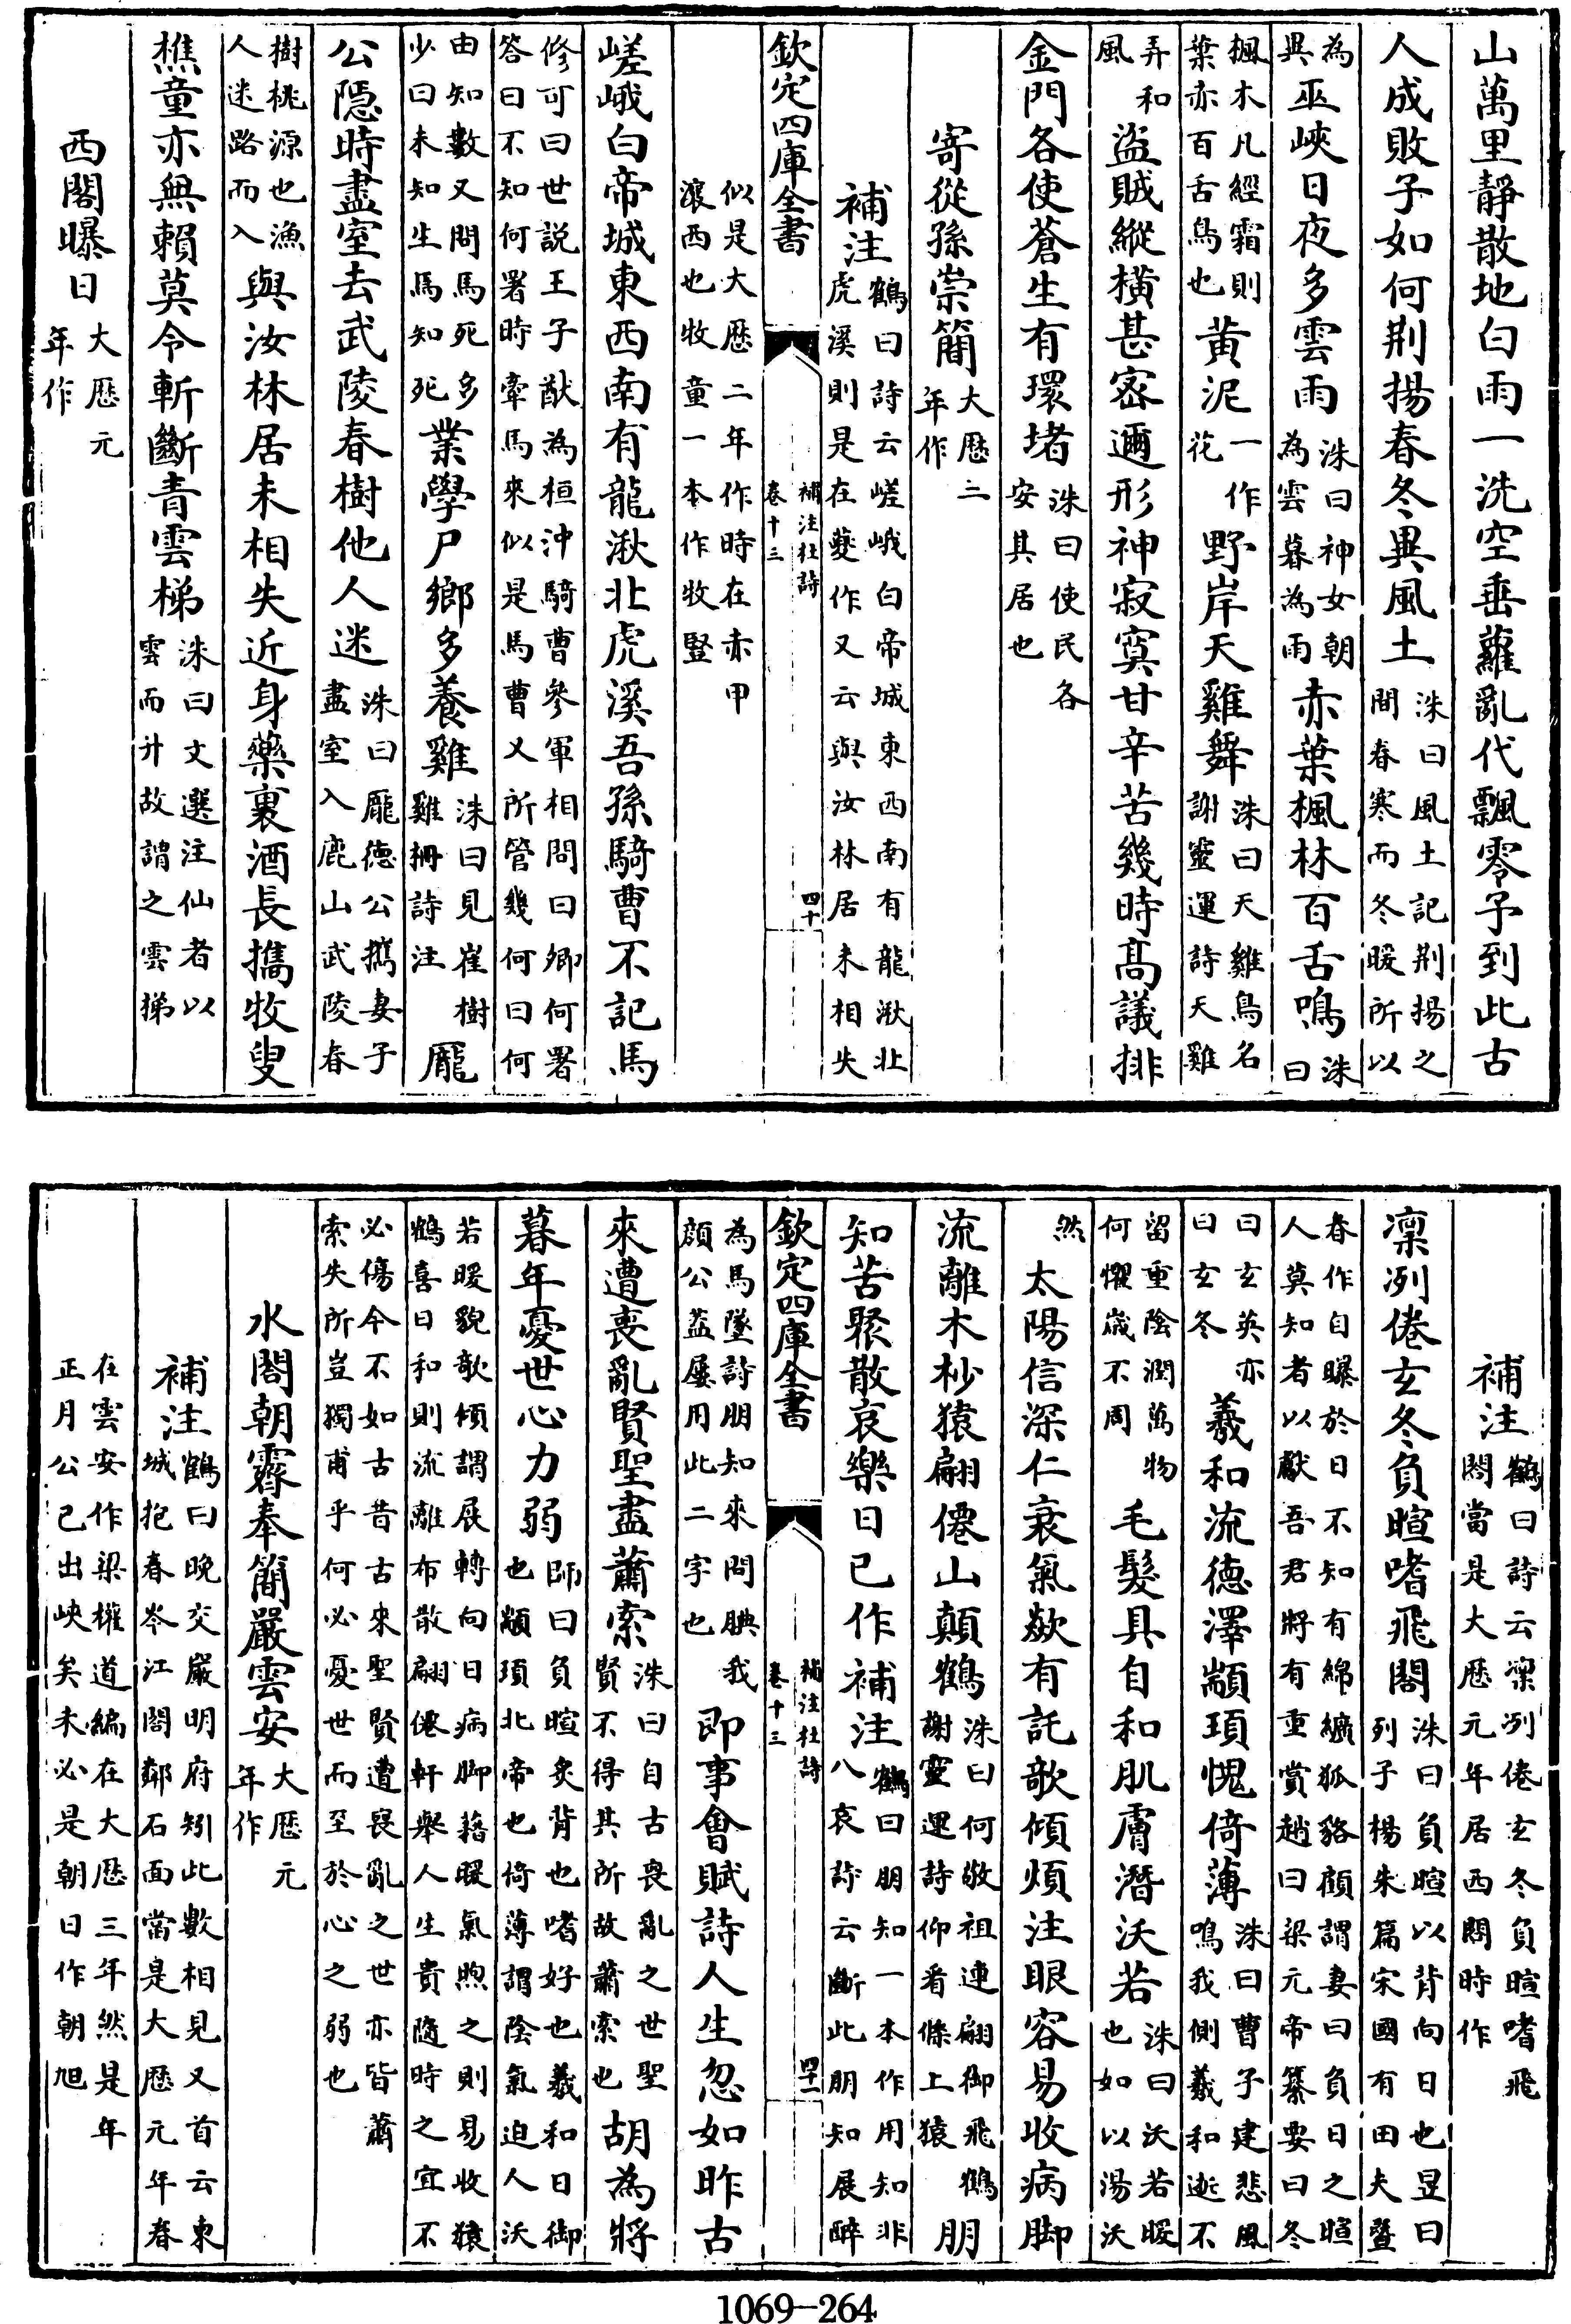 山萬里靜散地白雨一洗空垂蘿亂代飄零予到此古
人成敗子如何荆揚春冬異風土洙曰風土記荆揚之間春寒而冬暖所以
為異巫峽日夜多雲雨洙曰神女朝為雲暮為雨赤葉楓林百舌鳴洙曰
楓木凡經霜則葉亦百舌鳥也黄泥一作花野岸天雞舞洙曰天雞鳥名謝靈運詩天雞
弄和風盜賊縱横甚密邇形神寂寞甘辛苦幾時髙議排
金門各使蒼生有環堵洙曰使民各安其居也
寄從孫崇簡大厯二年作
補注鶴曰詩云嵯峨白帝城東西南有龍湫北虎溪則是在夔作又云與汝林居未相失
欽定四庫全書
補注杜詩
卷十三
四十
似是大厯二年作時在赤甲瀼西也牧童一本作牧豎
嵯峨白帝城東西南有龍湫北虎溪吾孫騎曹不記馬
修可曰世説王子猷為桓沖騎曹參軍相問曰卿何署答曰不知何署時牽馬來似是馬曹又所管幾何曰何
由知數又問馬死多少曰未知生馬知死業學尸鄉多養雞洙曰見崔樹雞柵詩注龐
公隠時盡室去武陵春樹他人迷洙曰龐德公攜妻子盡室入鹿山武陵春
樹桃源也漁人迷路而入與汝林居未相失近身藥裹酒長攜牧叟
樵童亦無賴莫令斬斷青雲梯洙曰文選注仙者以雲而升故謂之雲梯
西閣曝日大厯元年作
補注鶴曰詩云凜冽倦玄冬負暄嗜飛閣當是大厯元年居西閣時作
凜冽倦玄冬負暄嗜飛閣洙曰負暄以背向日也昱曰列子楊朱篇宋國有田夫暨
春作自曝於日不知有綿纊狐貉顧謂妻曰負日之暄人莫知者以獻吾君將有重賞趙曰梁元帝纂要曰冬
曰玄英亦曰玄冬羲和流德澤顓頊愧倚薄洙曰曹子建悲風鳴我側羲和逝不
留重陰潤萬物何懼歲不周毛髮具自和肌膚潛沃若洙曰沃若暖也如以湯沃
然太陽信深仁衰氣歘有託欹傾煩注眼容易收病脚
流離木杪猿翩僊山顛鶴洙曰何敬祖連翩御飛鶴謝靈運詩仰看條上猿朋
知苦聚散哀樂日已作補注鶴曰朋知一本作用知非八哀詩云斷此朋知展醉
欽定四庫全書
補注杜詩
卷十三
四十一
為馬墜詩朋知來問腆我顔公葢屢用此二字也即事會賦詩人生忽如昨古
來遭喪亂賢聖盡蕭索洙曰自古喪亂之世聖賢不得其所故蕭索也胡為將
暮年憂世心力弱師曰負暄炙背也嗜好也羲和日御也顓頊北帝也倚薄謂陰氣迫人沃
若暖貌欹傾謂展轉向日病脚藉暖氣煦之則易收猿鶴喜日和則流離布散翩僊軒舉人生貴隨時之宜不
必傷今不如古昔古來聖賢遭喪亂之世亦皆蕭索失所豈獨甫乎何必憂世而至於心之弱也
水閣朝霽奉簡嚴雲安大厯元年作
補注鶴曰晚交嚴明府矧此數相見又首云東城抱春岑江閣鄰石面當是大厯元年春
在雲安作梁權道編在大厯三年然是年正月公已出峽矣未必是朝日作朝旭
1069-264